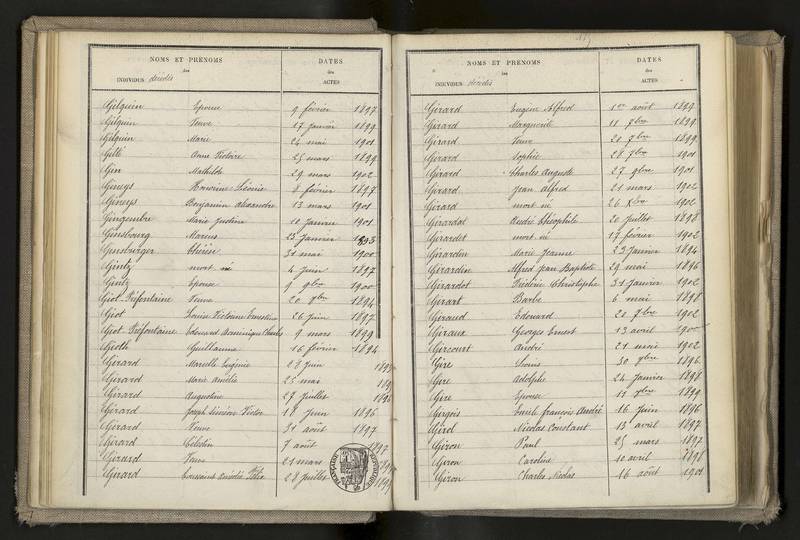 NOMS ET PRÉNOMS
des
INDIVIDUS décédés
DATES
des
ACTES
Gilquin Epouse 9 février 1897
Gilquin Veuve 17 Janvier 1899
Gilquin Marie 24 mai 1901
Gillé Anne Victoire 25 mars 1899
Gin Mathilde 29 mars 1902
Gineys Honorine Léonie 8 février 1897
Gineys Benjamin Alexandre 13 mars 1901
Gingembre Marie Justine 10 Janvier 1901
Ginsbourg Marcus 23 Janvier 1893
Ginsburger Thérèse 31 mai 1900
Gintz mort né 4 Juin 1897
Gintz Epouse 9 9bre 1900
Giot-Préfontaine Veuve 20 1894
Giot Louise Victoire Ernestine 26 Juin 1897
Giot Préfontaine Edouard Dominique Charles 9 mars 1899
Gioth Guillaume 16 février 1894
Girard Marcelle Eugénie 28 Juin
Girard Marie Amélie 25 mai
Girard Augustine 27 Juillet
Girard Joseph Victor 18 Juin 1896
Girard Veuve 31 août 1897
Girard Célestin 7 août 1897
Girard Veuve 21 mars
Girard Toussaint Amédée Félix 28 Juillet
NOMS ET PRÉNOMS
des
INDIVIDUS décédés
DATES
des
ACTES
Girard Eugène Alfred 1er août 1899
Girard Marguerite 11 7bre 1899
Girard Veuve 29 7bre 1899
Girard Sophie 28 7bre 1901
Girard Charles Auguste 27 9bre 1901
Girard Jean Alfred 21 mars 1902
Girard mort né 26 Xbre 1902
Girardat André Théophile 20 Juillet 1898
Girardet mort né 17 février 1902
Girardin Marie Jeanne 23 Janvier 1894
Girardin Alfred Jean Baptiste 29 mai 1896
Girardot Frédéric Christophe 31 Janvier 1902
Girart Barbe 6 mai 1898
Giraud Edouard 20 1902
Giraux Georges Ernest 13 avril 1900
Gircourt André 21 1902
Gire Louis 30 9bre 1896
Gire Adolphe 24 Janvier 1898
Gire Epouse 11 9bre 1899
Girgois Emile François André 16 Juin 1896
Girol Nicolas Constant 13 avril 1897
Giron Paul 25 mars 1897
Giron Caroline 10 avril 1898
Giron Charles Nicolas 16 août 1901